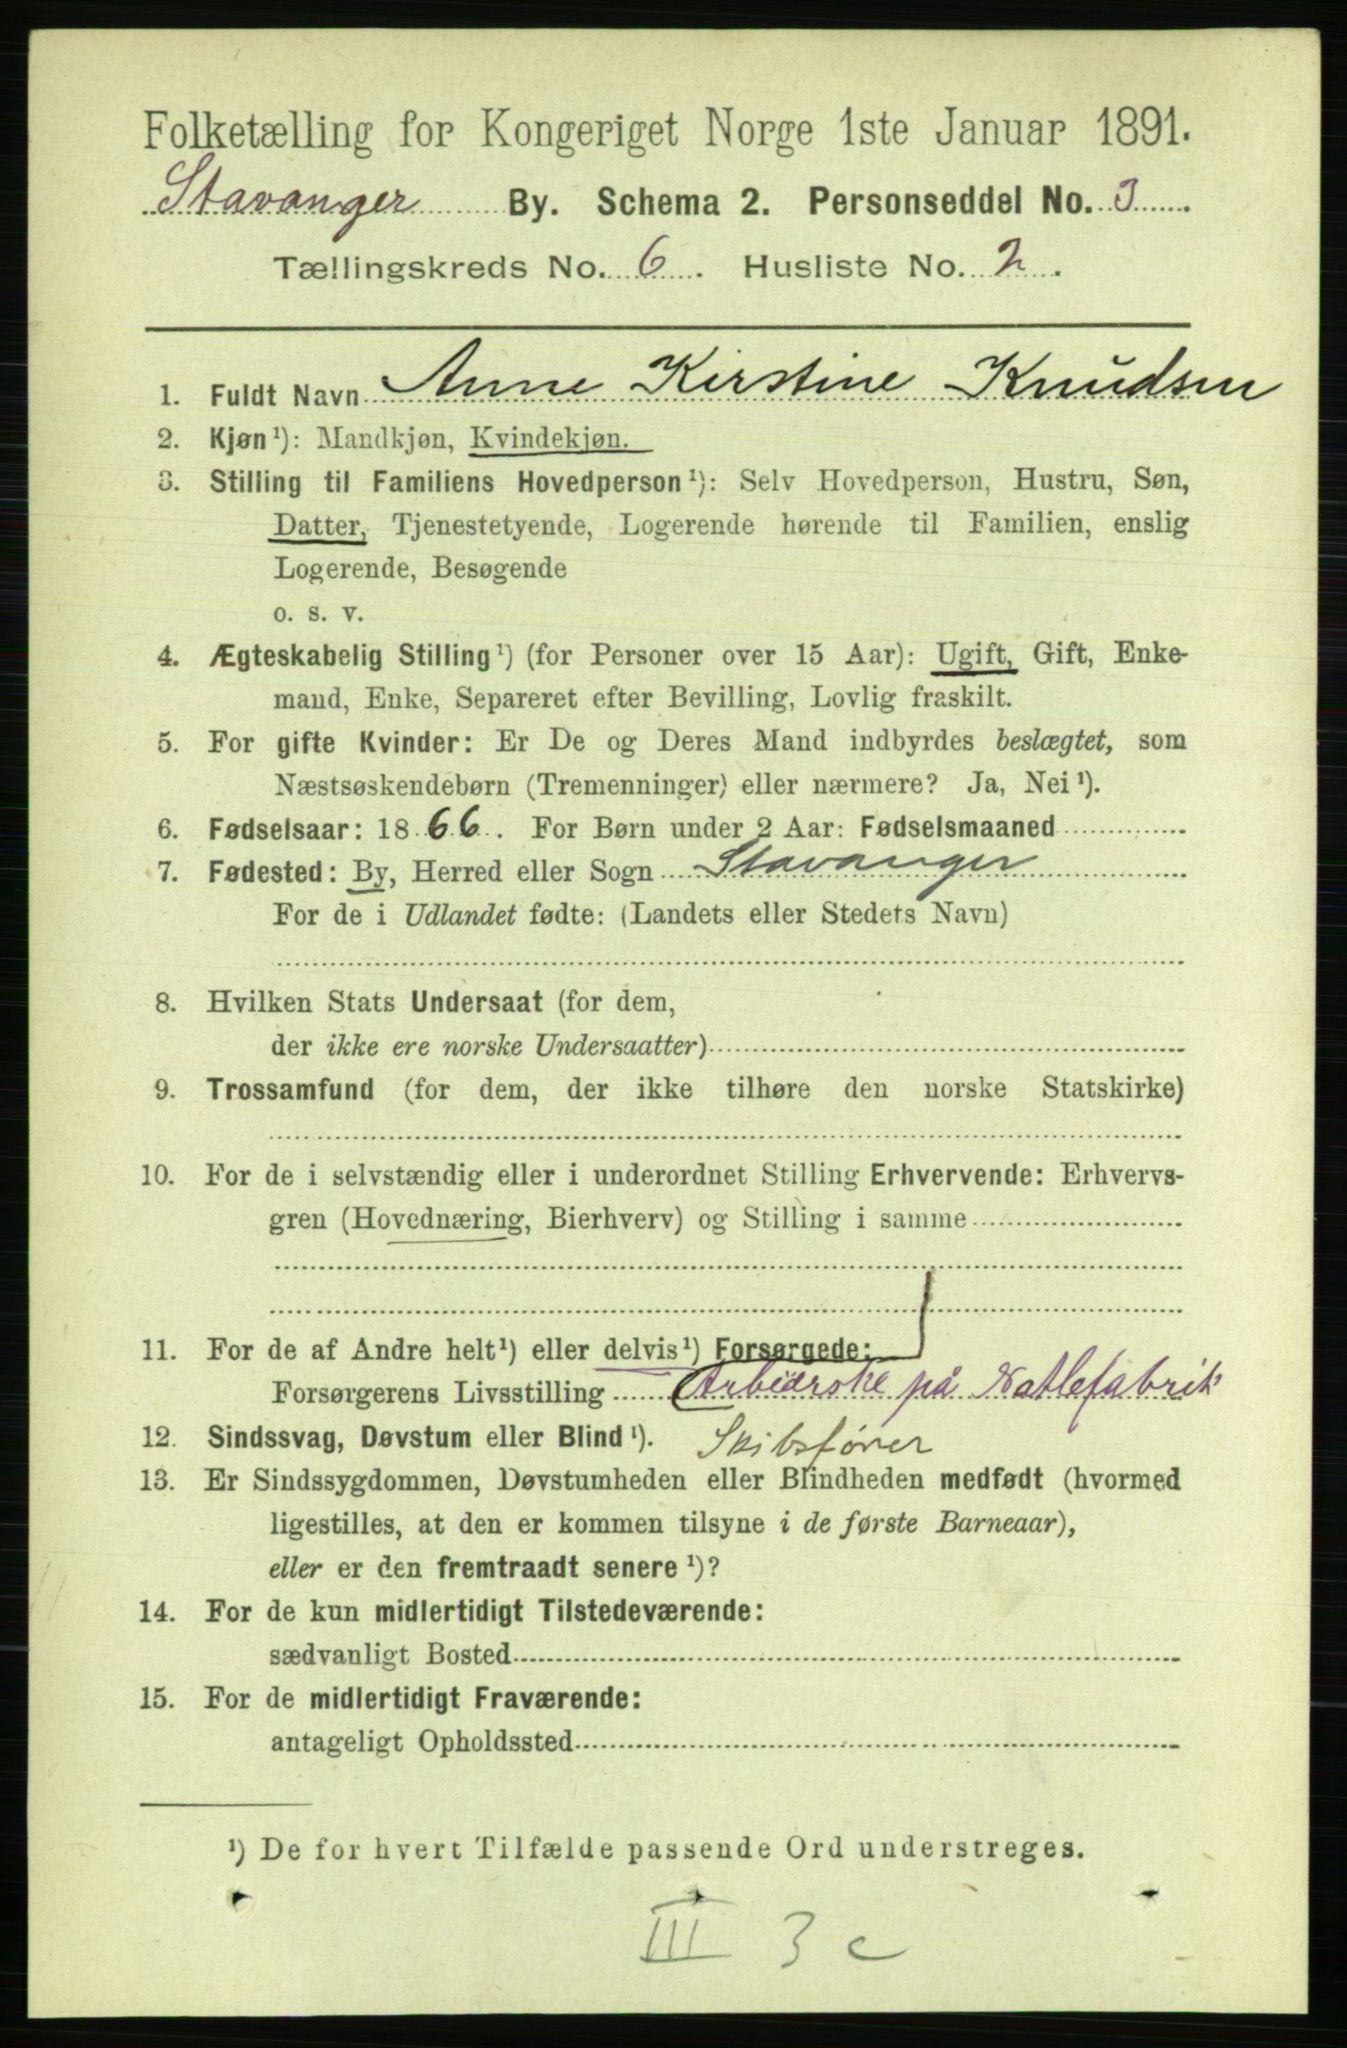 Folketælling for Kongeriget Norge 1ste Januar 1891.
Stavanger By. Schema 2. Personseddel No. 3
Tællingskreds No. 6. Husliste No. 2.
1. Fuldt Navn Anne Kirstine Knudsen
2. Kjøn¹): Mandkjøn, Kvindekjøn.
3. Stilling til Familiens Hovedperson¹): Selv Hovedperson, Hustru, Søn,
Datter, Tjenestetyende, Logerende hørende til Familien, enslig
Logerende, Besøgende
o. s. v.
4. Ægteskabelig Stilling¹) (for Personer over 15 Aar): Ugift, Gift, Enke-
mand, Enke, Separeret efter Bevilling, Lovlig fraskilt.
5. For gifte Kvinder: Er De og Deres Mand indbyrdes beslægtet, som
Næstsøskendebørn (Tremenninger) eller nærmere? Ja, Nei¹).
6. Fødselsaar: 1866. For Børn under 2 Aar: Fødselsmaaned
7. Fødested: By, Herred eller Sogn Stavanger
For de i Udlandet fødte: (Landets eller Stedets Navn)
8. Hvilken Stats Undersaat (for dem,
der ikke ere norske Undersaatter)
9. Trossamfund (for dem, der ikke tilhøre den norske Statskirke)
10. For de i selvstændig eller i underordnet Stilling Erhvervende: Erhvervs-
gren (Hovednæring, Bierhverv) og Stilling i samme
11. For de af Andre helt¹) eller delvis¹) Forsørgede:
Forsørgerens Livsstilling Arbiderske på
12. Sindssvag, Døvstum eller Blind¹). Skibsfører
13. Er Sindssygdommen, Døvstumheden eller Blindheden medfødt (hvormed
ligestilles, at den er kommen tilsyne i de første Barneaar),
eller er den fremtraadt senere¹)?
14. For de kun midlertidigt Tilstedeværende:
sædvanligt Bosted
15. For de midlertidigt Fraværende:
antageligt Opholdssted
¹) De for hvert Tilfælde passende Ord understreges.
III 3 c